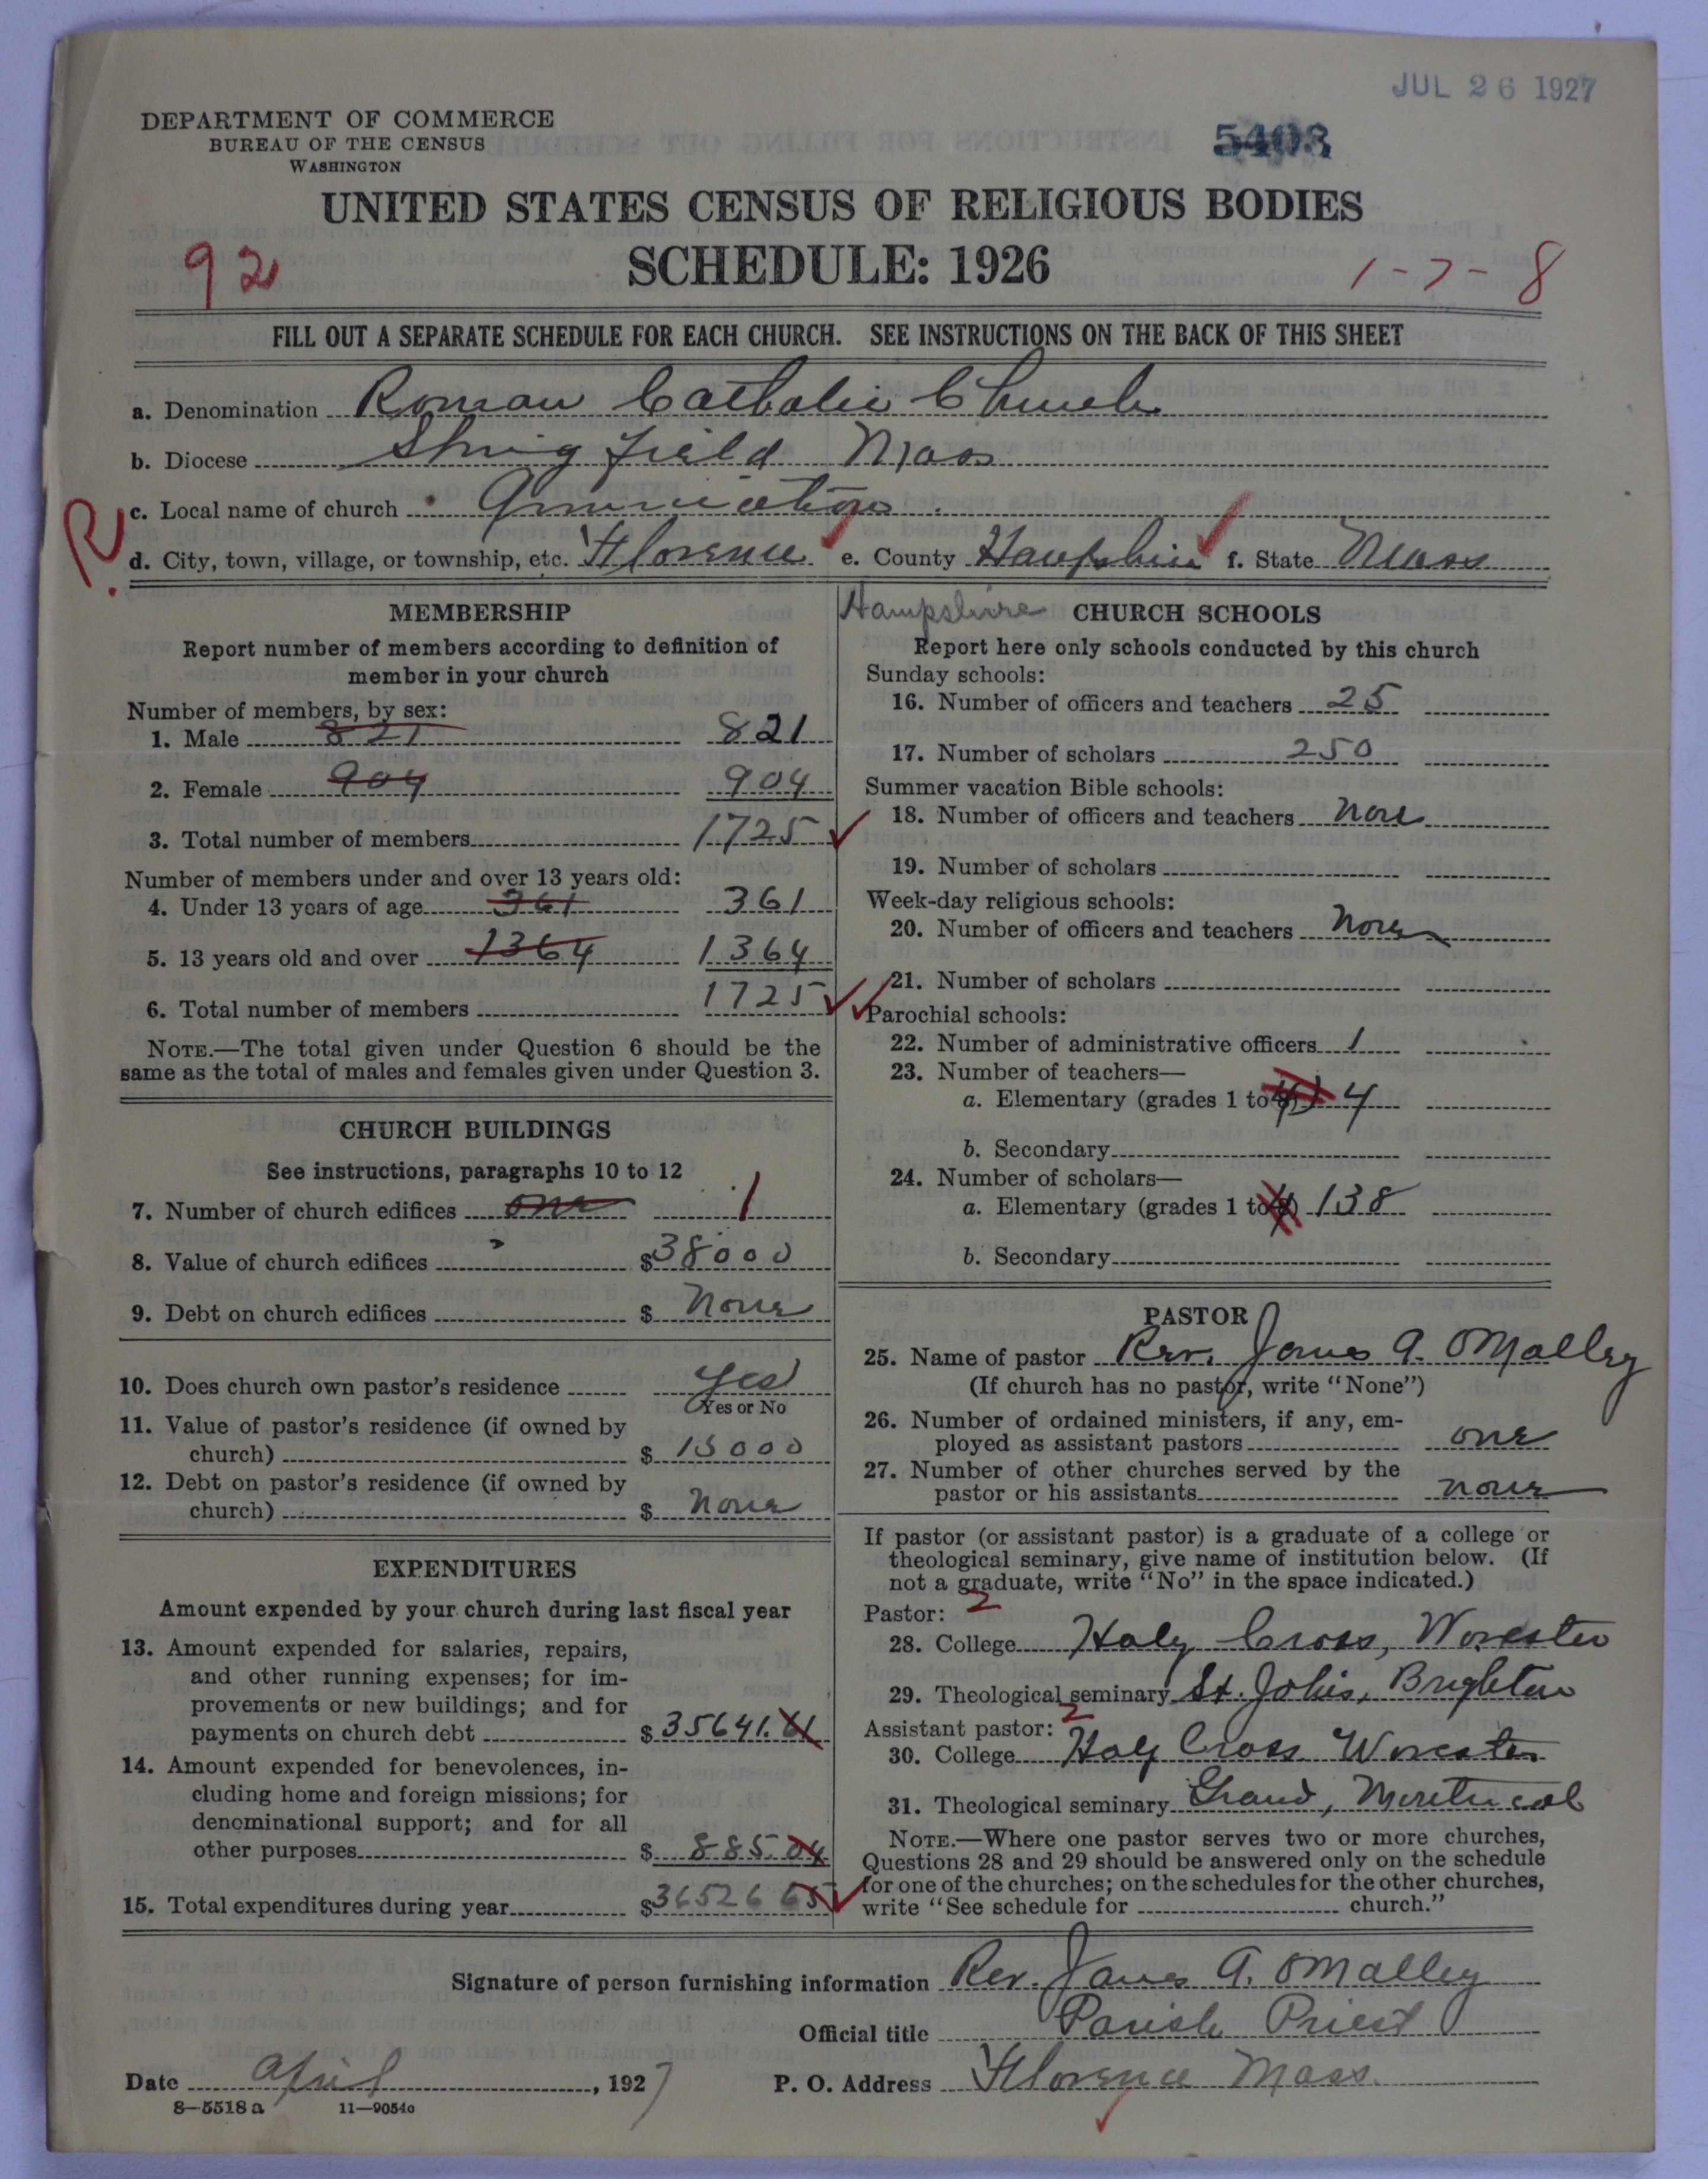 JUL 26 1927
DEPARTMENT OF COMMERCE
BUREAU OF THE CENSUS
WASHINGTON
5403
UNITED STATES CENSUS OF RELIGIOUS BODIES
92
SCHEDULE: 1926
1-7-8
FILL OUT A SEPARATE SCHEDULE FOR EACH CHURCH. SEE INSTRUCTIONS ON THE BACK OF THIS SHEET
a. Denomination Roman Catholic Church
b. Diocese Springfield Mass
R c. Local name of church Annunciation
d. City, town, village, or township, etc. Florence e. County Hampshire f. State Mass
MEMBERSHIP
Report number of members according to definition of
member in your church
Number of members, by sex:
1. Male 821 821
2. Female 904 904
3. Total number of members 1725
Number of members under and over 13 years old:
4. Under 13 years of age 361 361
5. 13 years old and over 1364 1364
6. Total number of members 1725
NOTE.—The total given under Question 6 should be the
same as the total of males and females given under Question 3.
CHURCH BUILDINGS
See instructions, paragraphs 10 to 12
7. Number of church edifices one 1
8. Value of church edifices $38000
9. Debt on church edifices $ None
10. Does church own pastor's residence Yes
Yes or No
11. Value of pastor's residence (if owned by
church) $ 15000
12. Debt on pastor's residence (if owned by
church) $ None
EXPENDITURES
Amount expended by your church during last fiscal year
13. Amount expended for salaries, repairs,
and other running expenses; for im-
provements or new buildings; and for
payments on church debt $ 35641.61
14. Amount expended for benevolences, in-
cluding home and foreign missions; for
denominational support; and for all
other purposes $ 885.04
15. Total expenditures during year $36526 65
Hampshire CHURCH SCHOOLS
Report here only schools conducted by this church
Sunday schools:
16. Number of officers and teachers 25
17. Number of scholars 250
Summer vacation Bible schools:
18. Number of officers and teachers None
19. Number of scholars
Week-day religious schools:
20. Number of officers and teachers None
21. Number of scholars
Parochial schools:
22. Number of administrative officers 1
23. Number of teachers—
a. Elementary (grades 1 to 4
b. Secondary
24. Number of scholars—
a. Elementary (grades 1 to 138
b. Secondary
PASTOR
25. Name of pastor Rev. James A. OMalley
(If church has no pastor, write "None")
26. Number of ordained ministers, if any, em-
ployed as assistant pastors one
27. Number of other churches served by the
pastor or his assistants none
If pastor (or assistant pastor) is a graduate of a college or
theological seminary, give name of institution below. (If
not a graduate, write "No" in the space indicated.)
Pastor: 2
28. College Holy Cross, Worcester
29. Theological seminary St. Johns, Brighton
Assistant pastor: 2
30. College Holy Cross Worcester
31. Theological seminary Grand, Montreal
NOTE.—Where one pastor serves two or more churches,
Questions 28 and 29 should be answered only on the schedule
for one of the churches; on the schedules for the other churches,
write "See schedule for church."
Signature of person furnishing information Rev. James A. OMalley
Official title Parish Priest
Date April, 1927 P. O. Address Florence Mass.
8—5518a 11—9054c